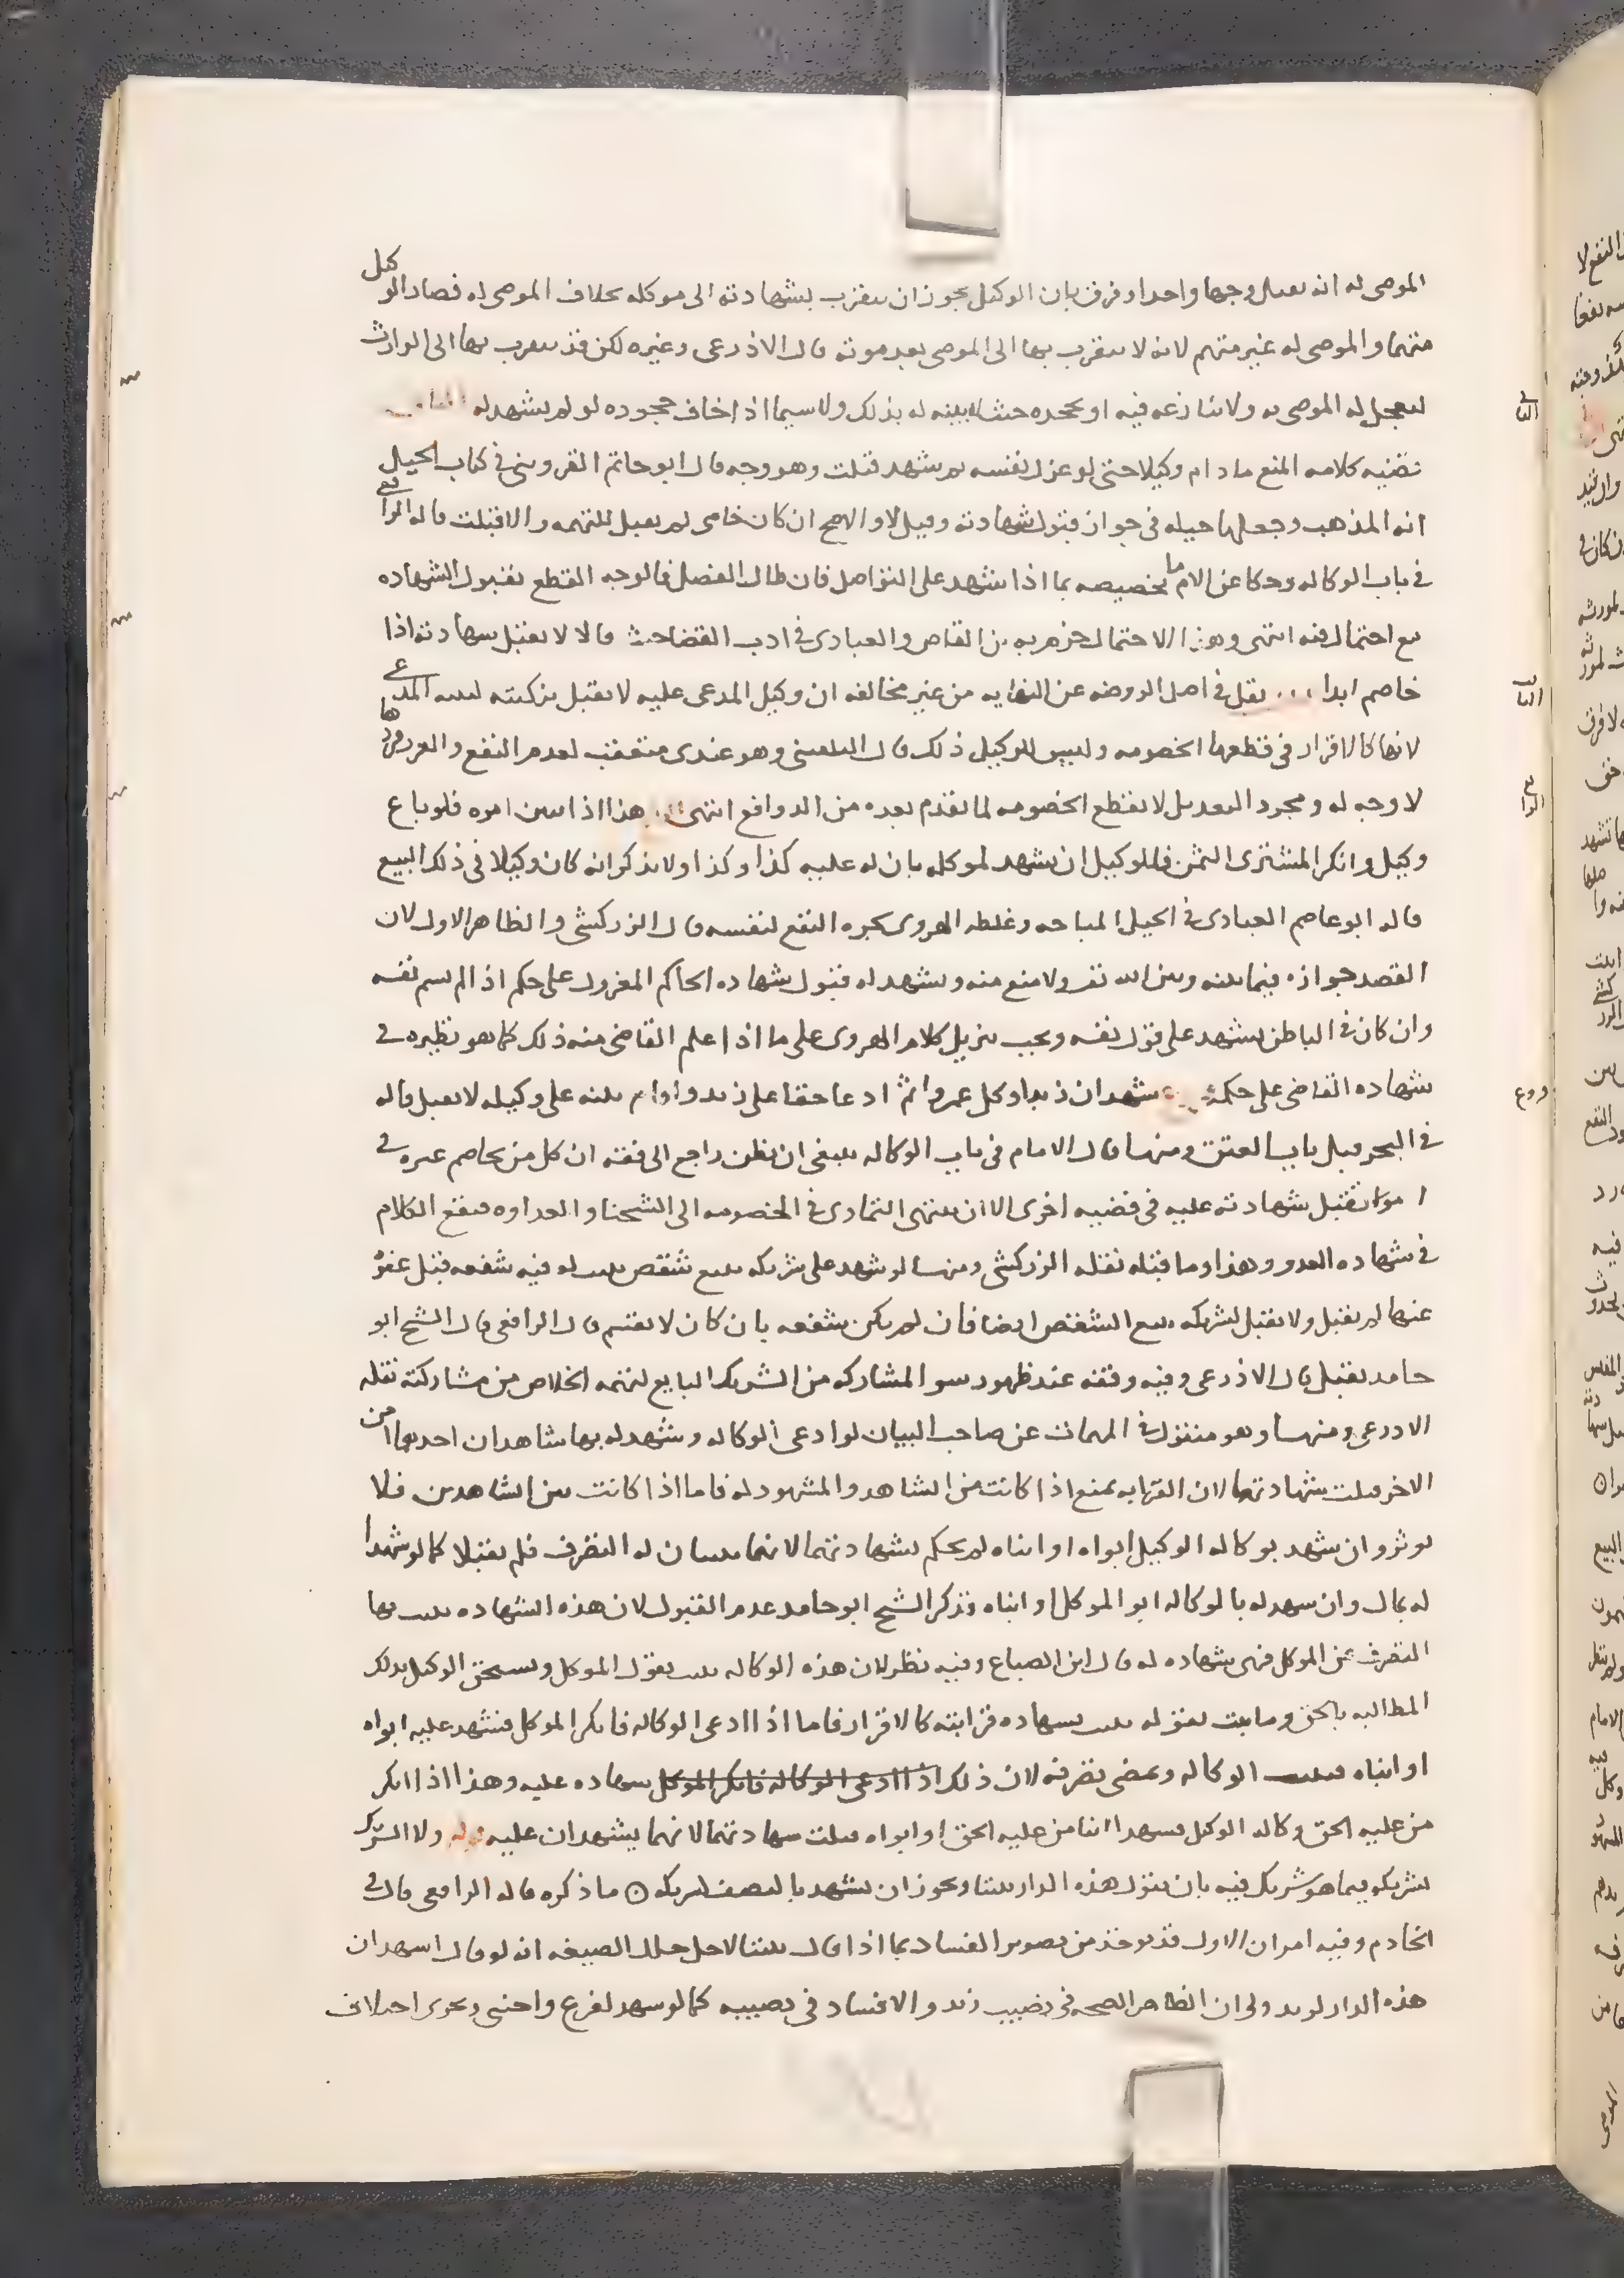 الموصى له انه يقبل وجها واحدا وفرق بان الوكيل يجوز ان يتقرب بشهادته الى موكله بخلاف الموصى له فصار الوكيل
متهما والموصى له غير متهم لانه لا يتقرب بها الى الموصى بعد موته قال الاذرعى وغيره لكن قد يتقرب بها الى الوارث
ليعجل له الموصى به ولا ينازعه فيه او يجحده حيث لا بينه له بذلك ولا سيما اذا خاف جحوده لو لم يشهد له
تقضيه كلامه المنع ما دام وكيلا حتى لو عزل نفسه ثم شهد قبلت وهو وجه قال ابو حاتم القزوينى فى كتاب الحيل
انه المذهب وجعلها حيله فى جواز قبول شهادته وقيل لا والاصح ان كان خاصم لم يقبل للتهمه والا قبلت قاله الرافعى
فى باب الوكاله وحكا عن الامام تخصيصه بما اذا شهد على التواصل فان طال الفصل فالوجه القطع بقبول الشهاده
مع احتمال فيه انتهى وهذا الاحتمال جزم به بن القاص والعبادى فى ادب القضا حيث قالا لا يقبل شهادته اذا
خاصم ابدا نقل فى اصل الروضه عن من غير مخالفه ان وكيل المدعى عليه لا يقبل تزكيته لبينه المدعى
لانها كالاقرار فى قطعها الخصومه وليس للوكيل ذلك قال البلقينى وهو عندى متعقب لعدم النفع و
لا وجه له ومجرد التعديل لا يقطع الخصومه لما تقدم بعده من الدوافع انتهى هذا اذا امره فلو باع
وكيل وانكر المشترى الثمن فللوكيل ان يشهد لموكله بان له عليه كذا وكذا ولا يذكر انه كان وكيلا فى ذلك البيع
قاله ابو عاصم العبادى فى الحيل المباحه وغلطه الهروى بجره النفع لنفسه قال الزركشى والظاهر الاول لان
القصد جوازه فيما بينه وبين الله تعـ ولا منع منه ويشهد له قبول شهاده الحاكم المعزول على حكم اذا لم يسم نفسه
وان كان فى الباطن يشهد على قول نفسه ويجب تنزيل كلام الهروى على ما اذا علم القاضى منه ذلك كما هو نظيره فى
شهاده القاضى على حكمه شهد ان زيدا وكل عمروا ثم ادعا حقا على زيد واقام بينه على وكيله لا يقبل قاله
فى البحر قبيل باب العتق ومنها قال الامام فى باب الوكاله ينبغى ان راجع الى فقه ان كل من يخاصم غيره فى
امور تقبل شهادته عليه فى قضيه اخرى الا ان ينتهى التمادى فى الخصومه الى الشحنا والعداوه فيقع الكلام
فى شهاده العدو وهذا وما قبله نقله الزركشى ومنها لو شهد على شريكه ببيع شقص يثبت له فيه شفعه قبل عفوه
عنها لم يقبل ولا يقبل لشريكه ببيع الشقص ايضا فان لم يكن شفعه بان كان لا يقسم قال الرافعى قال الشيخ ابو
حامد يقبل قال الاذرعى وفيه وقفه عند ظهور سو المشاركه من الشريك البايع لتهمه الخلاص من مشاركته نقله
الاذرعى ومنها وهو منقول فى المهمات عن صاحب البيان لو ادعى الوكاله وشهد له بها شاهدان احدهما ابن
الاخر قبلت شهادتهما لان القرابه تمنع اذا كانت من الشاهد والمشهود له فاما اذا كانت بين الشاهدين فلا
يوثر وان شهد بوكاله الوكيل ابواه او ابناه لم يحكم بشهادتهما لانهما يثبتان له التصرف فلم يقبلا كما لو شهدا
له بمال وان شهد له بالوكاله ابو الموكل او ابناه فذكر الشيخ ابو حامد عدم القبول لان هذه الشهاده يثبت بها
التصرف عن الموكل فهى شهاده له قال ابن الصباغ وفيه نظر لان هذه الوكاله يثبت بقول الموكل ويستحق الوكيل بذلك
المطالبه بالحق وما يثبت بقوله يثبت بشهاده قرابته كالاقرار فاما اذا ادعى الوكاله فانكر الموكل فشهد عليه ابواه
او ابناه يثبت الوكاله وتمضى تصرفه لان ذلك اذا ادعى الوكاله فانكر الموكل شهاده عليه وهذا اذا انكر
من عليه الحق وكاله الوكيل فشهد ابنا من عليه الحق او ابواه قبلت شهادتهما لانهما يشهدان عليه قوله ولا الشريك
لشريكه فيما هو شريك فيه بان يقول هذه الدار بيننا ويجوز ان يشهد بالنصف لشريكه ما ذكره قاله الرافعى قال فى
الخادم وفيه امران الاول قد يوخذ من تصوير الفساد بما اذا قال بيننا لاجل خلل الصيغه انه لو قال اشهد ان
هذه الدار لزيد ولى ان الظاهر الصحه فى نصيب زيد والافساد فى نصيبه كما لو شهد لفرع واجنبى ويجرى اختلاف
فروع